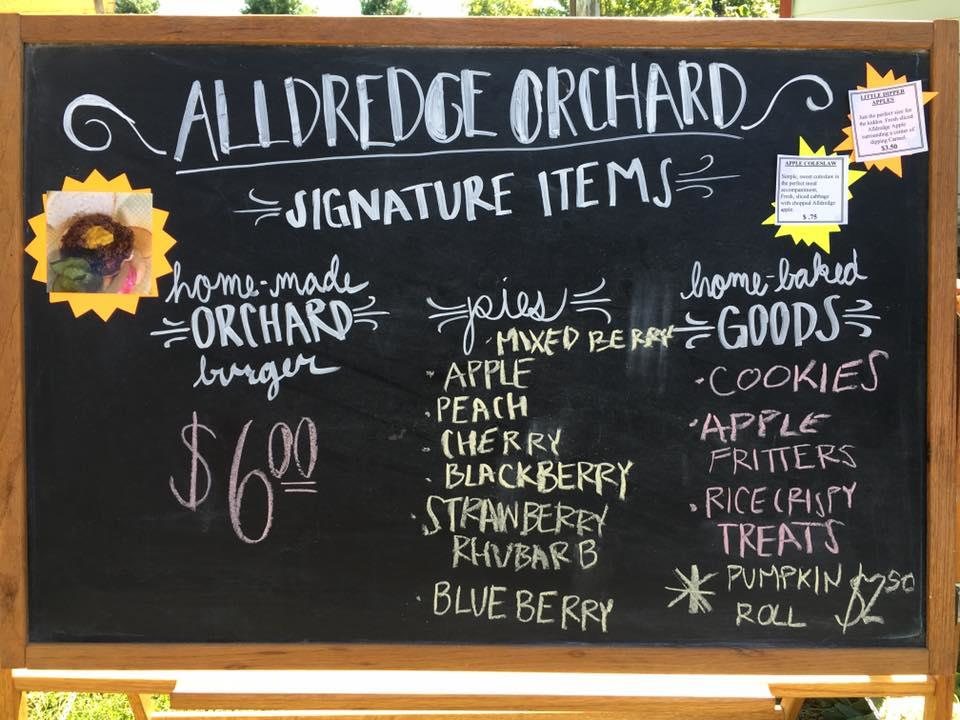 ALLDREDGE ORCHARD
SIGNATURE ITEMS
LITTLE DIPPER
APPLES
Just the perfect size for
the kiddos. Fresh sliced
Alldredge Apple
surrounding a center of
dipping Caramel.
$3.50
APPLE COLESLAW
Simple, sweet coleslaw is
the perfect meal
accompaniment.
Fresh, sliced cabbage
with chopped Alldredge
apple.
$ .75
home-made
ORCHARD
burger
$6.00
pies
· MIXED BERRY
· APPLE
· PEACH
· CHERRY
· BLACKBERRY
· STRAWBERRY
RHUBARB
· BLUEBERRY
home-baked
GOODS
· COOKIES
· APPLE
FRITTERS
· RICE CRISPY
TREATS
* PUMPKIN $2.50
ROLL